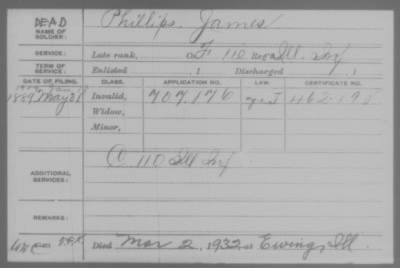 DEAD
NAME OF SOLDIER: Phillips, James
SERVICE: Late rank, Co F 110 Reg't Ill. Inf
TERM OF SERVICE: Enlisted , 1 Discharged , 1
DATE OF FILING. CLASS. APPLICATION NO. LAW. CERTIFICATE NO.
1889 May Invalid, 707,176 462,
Widow,
Minor,
C 110 Ill Inf
ADDITIONAL SERVICES:
REMARKS:
Died Mar 2, 1932 at Ewing, Ill.